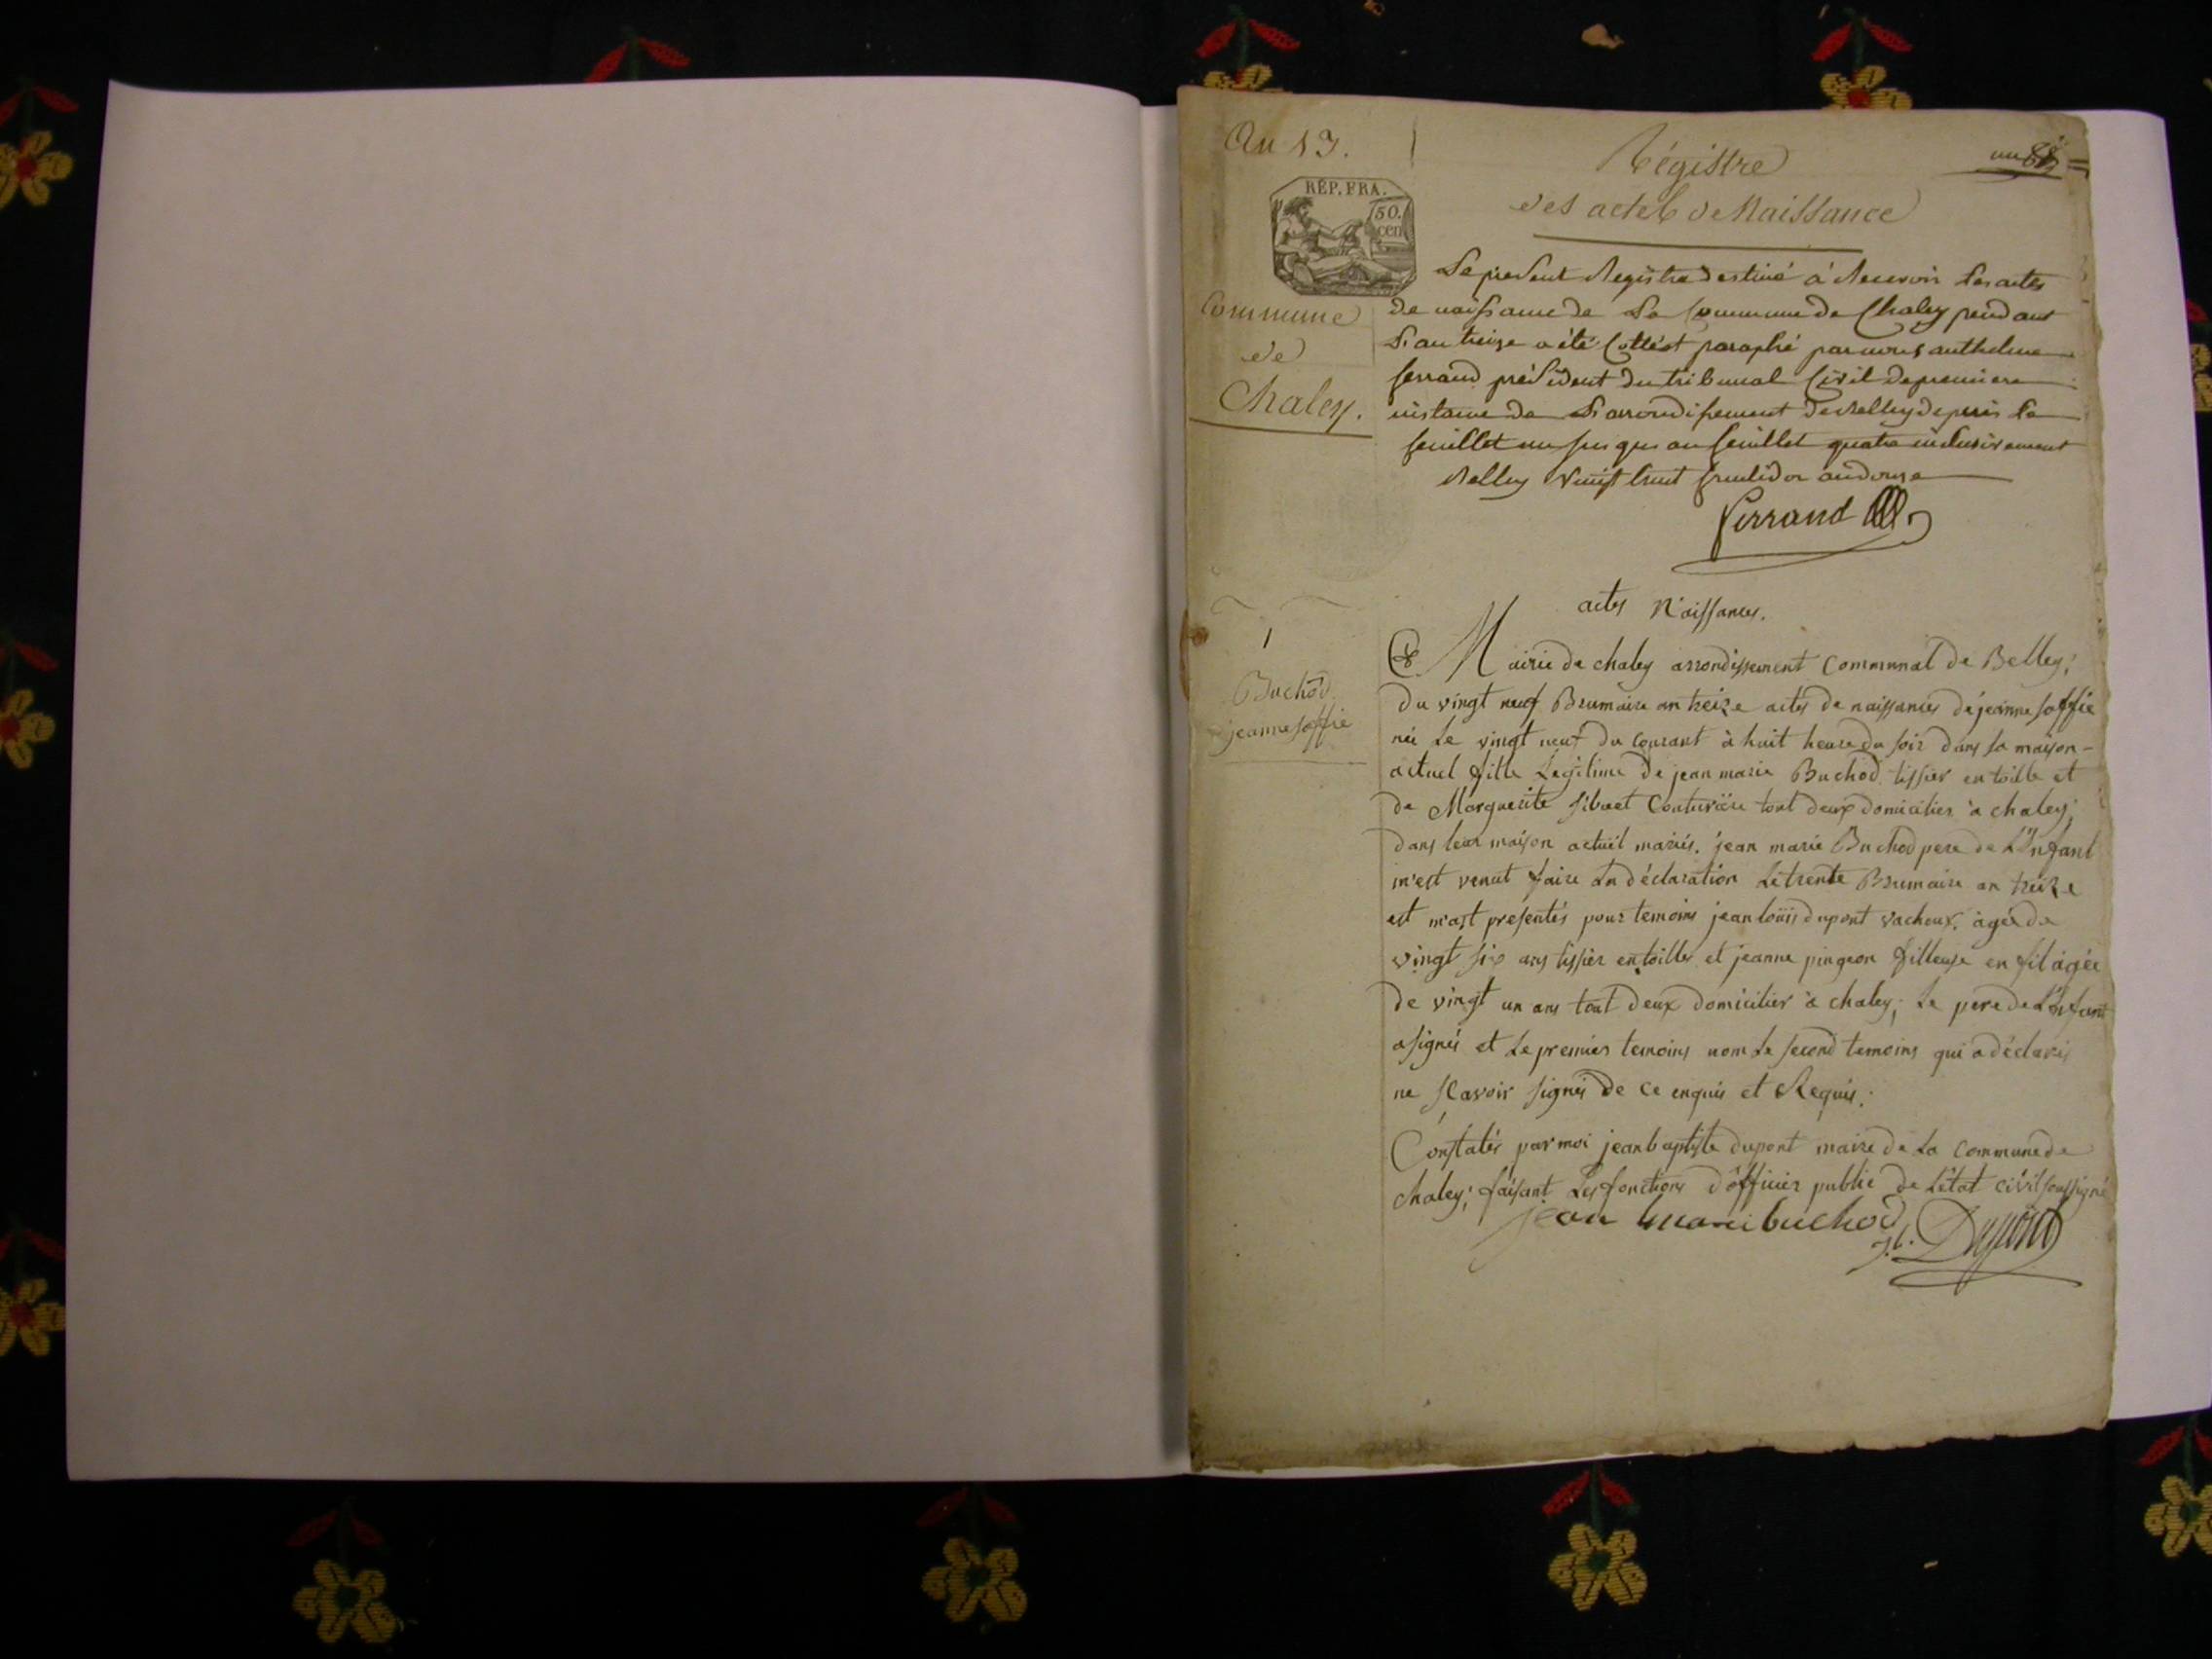 An 13.
Régistre
un
des actes de Naissance
RÉP. FRA.
50.
cen
Commune
de
Chaley.
Le present Registre destiné à Recevoir les actes
de naissance de la Commune de Chaley pendant
L'an treize a été Cotté et paraphé par nous anthelme
ferrand président du tribunal Civil de premiere
instance de L'arrondissement de Belley depuis le
feuillet un jusques au feuillet quatre inclusivement
Belley vingt huit fructidor an douze
Ferrand
actes Naissances.
1
Buchod
jeanne soffie
Mairie de chaley arrondissement Communal de Belley;
Du vingt neuf Brumaire an treize actes de naissances de jeanne soffie
née Le vingt neuf du courant à huit heure du soir dans sa maison -
actuel fille Legitime de jean marie Buchod tissier en toille et
de Marguerite sibuet Couturière tout deux domicilier à chaley;
dans leur maison actuel mariés. jean marie Buchod pere de L'Enfant
m'est venut faire La déclaration Le trente Brumaire an treize
est m'ast presentés pour temoins jean loüis dupont vachoux. agée de
vingt six ans tissier en toilles et jeanne pingeon filleuse en fil agée
de vingt un ans tout deux domicilier à chaley; Le pere de L'enfant
a signés et Le premier temoins nom Le second temoins qui a déclarés
ne sçavoir signés de ce enquis et Requis.
Constatés par moi jean baptiste dupont maire de La commune de
chaley; faisant Les fonctions d'officier public de L'état civil soussigné
jean marie buchod
J.L. Dupont